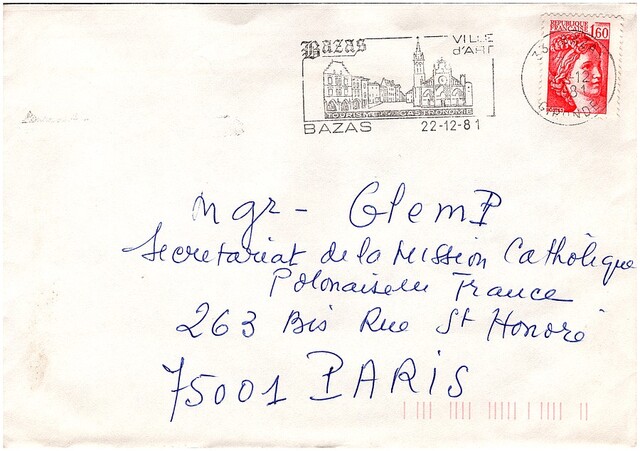 Bazas
VILLE
d'ART
TOURISME GASTRONOMIE
BAZAS 22-12-81
REPUBLIQUE
FRANÇAISE
1,60
GIRONDE
Mgr - GlemP
Secretariat de la Mission Catholique
Polonaise en France
263 Bis Rue St Honoré
75001 PARIS